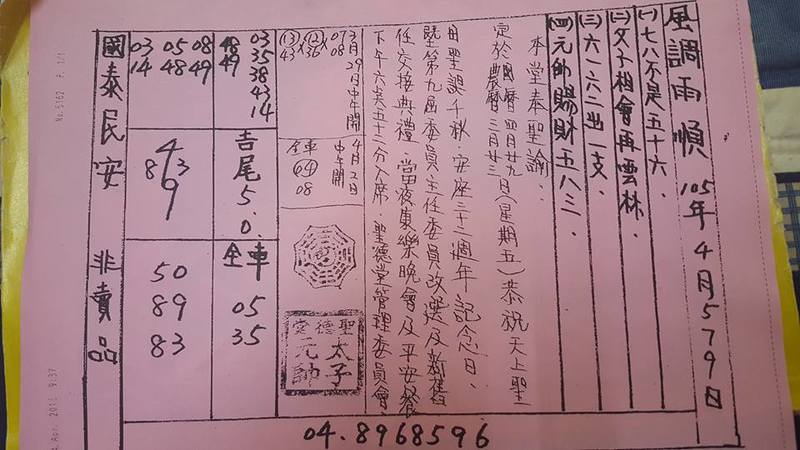 風調雨順 105年4月579日
(一)七八不是五十六.
(二)父子相會再雲林.
(三)六一六二出一支.
(四)元帥賜財五八三.
本堂奉聖諭:
定於國曆四月廿九日(星期五)恭祝天上聖
農曆三月廿三
母聖誕千秋.安座三十二週年記念日、
暨第九屆委員主任委員改選及新舊
任交接典禮.當夜東樂晚會及平安餐
下午六点五十二分入席.聖德堂管理委員會
07 3月29日中午開
08
(12)
36
(13)
43
4月2日
中午開
全車
(64)
08
聖德堂
太子元帥
03
35
38
43
14
48
49
08 49
05 48
03 14
吉尾5.0.
4
8 3
9
全車
05
35
50
89
83
國泰民安 非賣品
04.8968596
No. 5162 P. 1/1
9:37